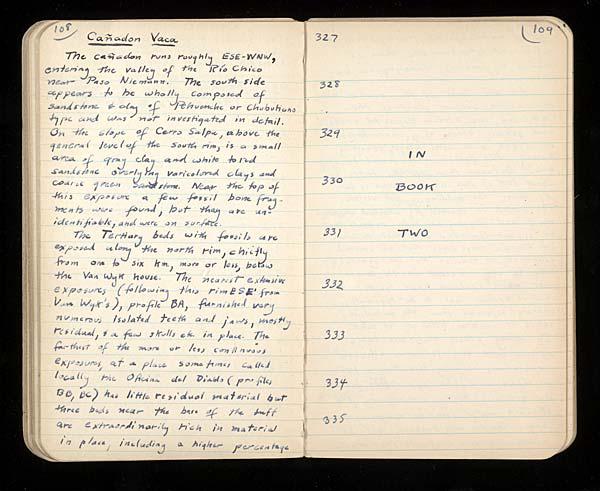 108
Cañadon Vaca
The cañadon runs roughly ESE-WNW,
entering the valley of the Río Chico
near Paso Niemann. The south side
appears to be wholly composed of
sandstone & clay of Pehuenche or Chubutiano
type and was not investigated in detail.
On the slope of Cerro Salpa, above the
general level of the south rim, is a small
area of gray clay and white to red
sandstone overlying varicolored clays and
coarse green sandstone. Near the top of
this exposure a few fossil bone frag-
ments were found, but they are un-
identifiable, and were on surface.
The Tertiary beds with fossils are
exposed along the north rim, chiefly
from one to six km, more or less, below
the Van Wyk house. The nearest extensive
exposures (following this rim ESE from
Van Wyk's), profile BA, furnished very
numerous isolated teeth and jaws, mostly
residual, & a few skulls etc. in place. The
farthest of the more or less continuous
exposures, at a place sometimes called
locally the Oficina del Diablo (profiles
BB, BC) has little residual material but
three beds near the base of the tuff
are extraordinarily rich in material
in place, including a higher percentage
109
327
328
329
IN
330
BOOK
331
TWO
332
333
334
335